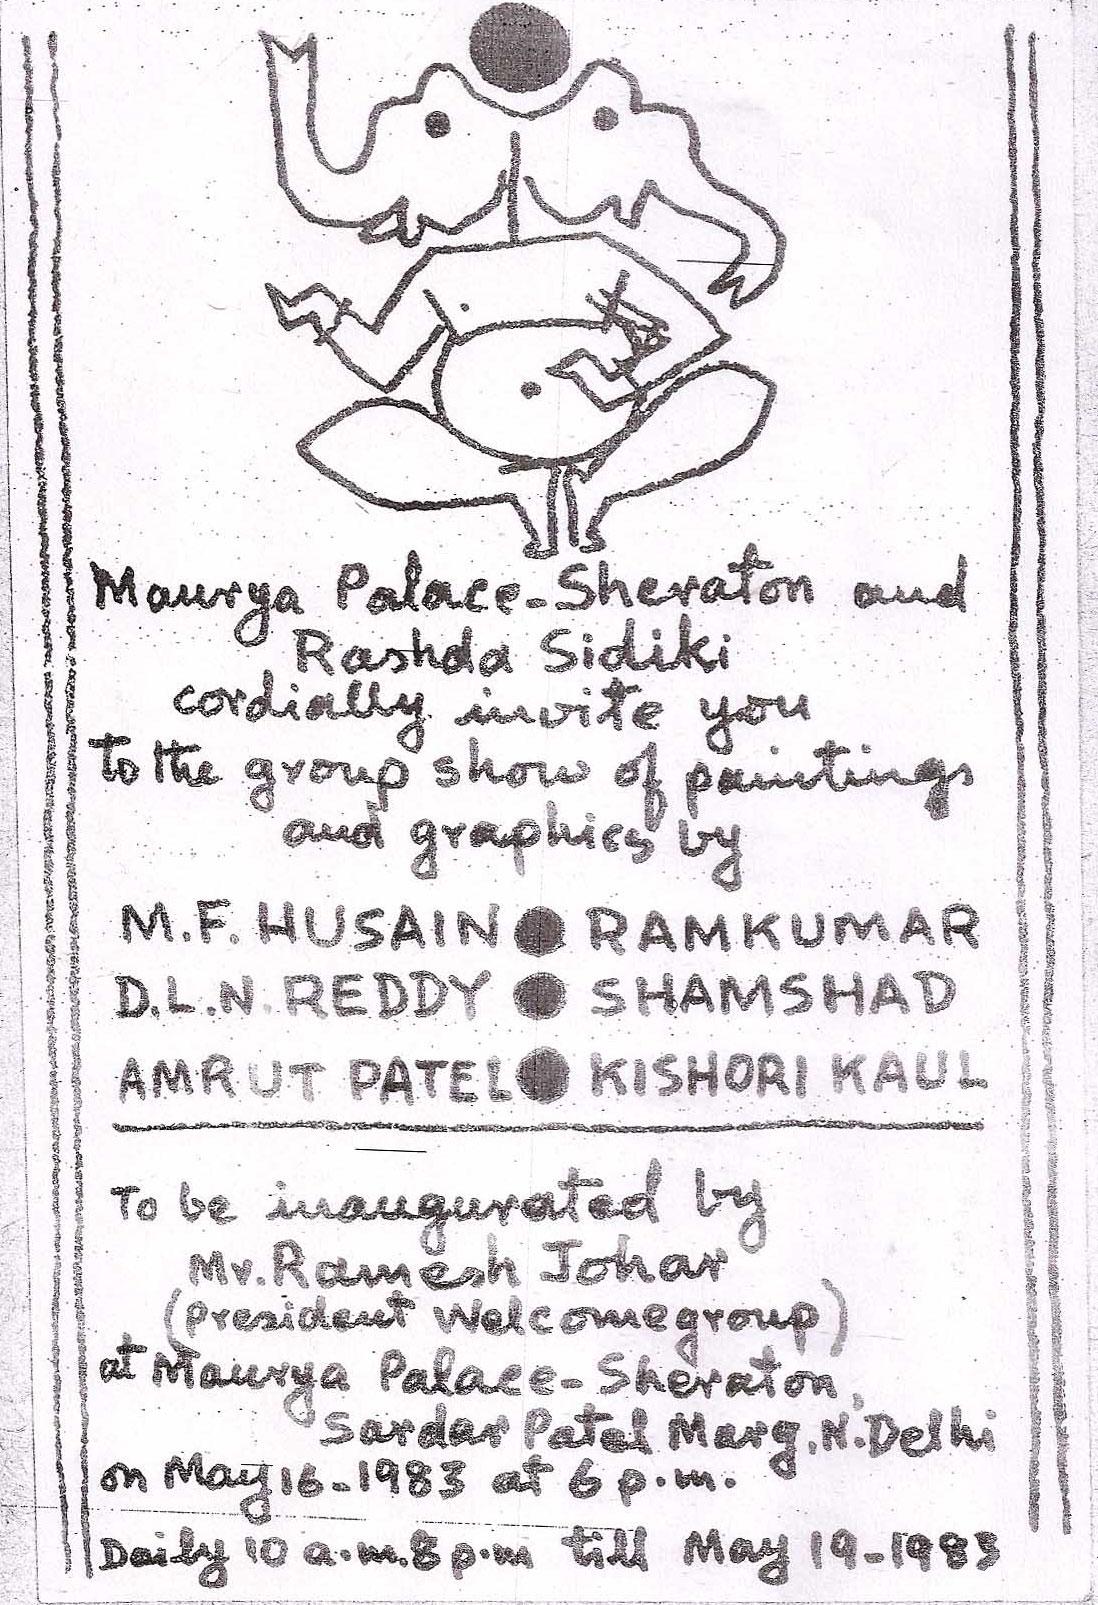 Maurya Palace-Sheraton and
Rashda Sidiki
cordially invite you
to the group show of paintings
and graphics by
M.F. HUSAIN ● RAMKUMAR
D.L.N. REDDY ● SHAMSHAD
AMRUT PATEL ● KISHORI KAUL
To be inaugurated by
Mr. Ramesh Johar
(President Welcomegroup)
at Maurya Palace-Sheraton,
Sardar Patel Marg, N. Delhi
on May 16-1983 at 6 p.m.
Daily 10 a.m. 8 p.m till May 19-1983